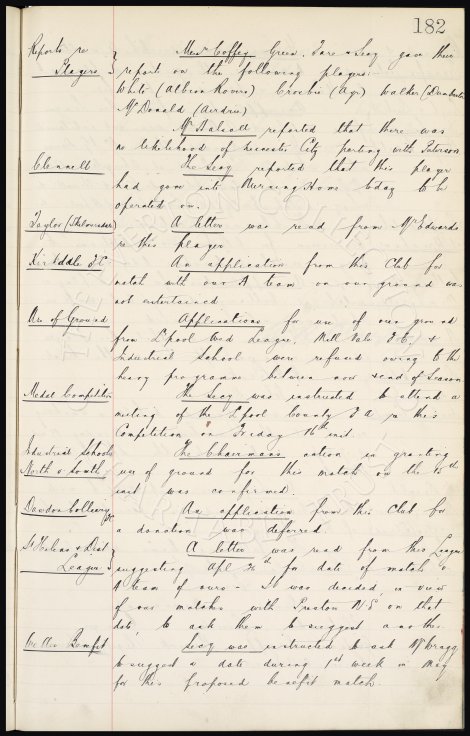 182
Reports re Messrs Coffey Green, Fare & Secy gave their
Players reports on the following players:
White (Albion Rovers) Crosbie (Ayr) Walker (Dumbarton)
McDonald (Airdrie)
Mr Halsall reported that there was
no likelihood of Leicester City parting with Paterson
Clennell The Secy reported that this player
had gone into Nursing Home today to be
operated on.
Taylor A letter was read from Mr Edwards
re this player
Kirkdale F.C. An application from this Club for
match with our A team on our ground was
not entertained
Use of Ground Applications for use of our ground
from L'pool Wed League, Mill Vale F.C. &
Industrial School were refused owing to the
heavy programme between now & end of Season
Medal Competition The Secy was instructed to attend a
meeting of the L'pool County F A re this
Competition on Friday 16th inst.
Industrial Schools The Chairmans action in granting
North v South use of ground for this match on the
inst was confirmed.
Dawdon Colliery An application from this Club for
a donation was deferred.
St Helens & Dist A letter was read from this League
League suggesting Apl for date of match v
A team of ours - It was decided, in view
of our matches with Preston N.E. on that
date, to ask them to suggest another
Benefit Secy was instructed to ask Mr Wragg
to suggest a date during 1st week in May
for this proposed benefit match.